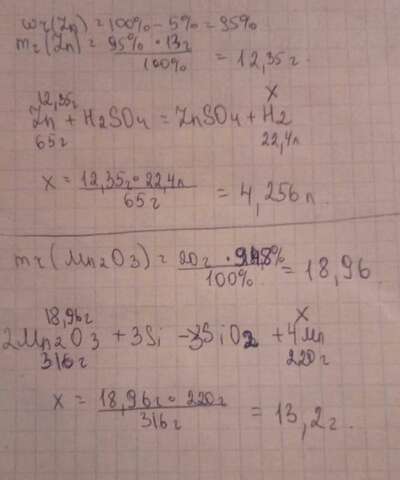 wч(Zn) = 100% - 5% = 95%
mч(Zn) = 95% · 13г / 100% = 12,35г.
12,35г x
Zn + H2SO4 = ZnSO4 + H2
65г 22,4л
x = 12,35г · 22,4л / 65г = 4,256л.
mч(Mn2O3) = 20г · 94,8% / 100% = 18,96
18,96г x
2Mn2O3 + 3Si - 3SiO2 + 4Mn
316г 220г
x = 18,96г · 220г / 316г = 13,2г.